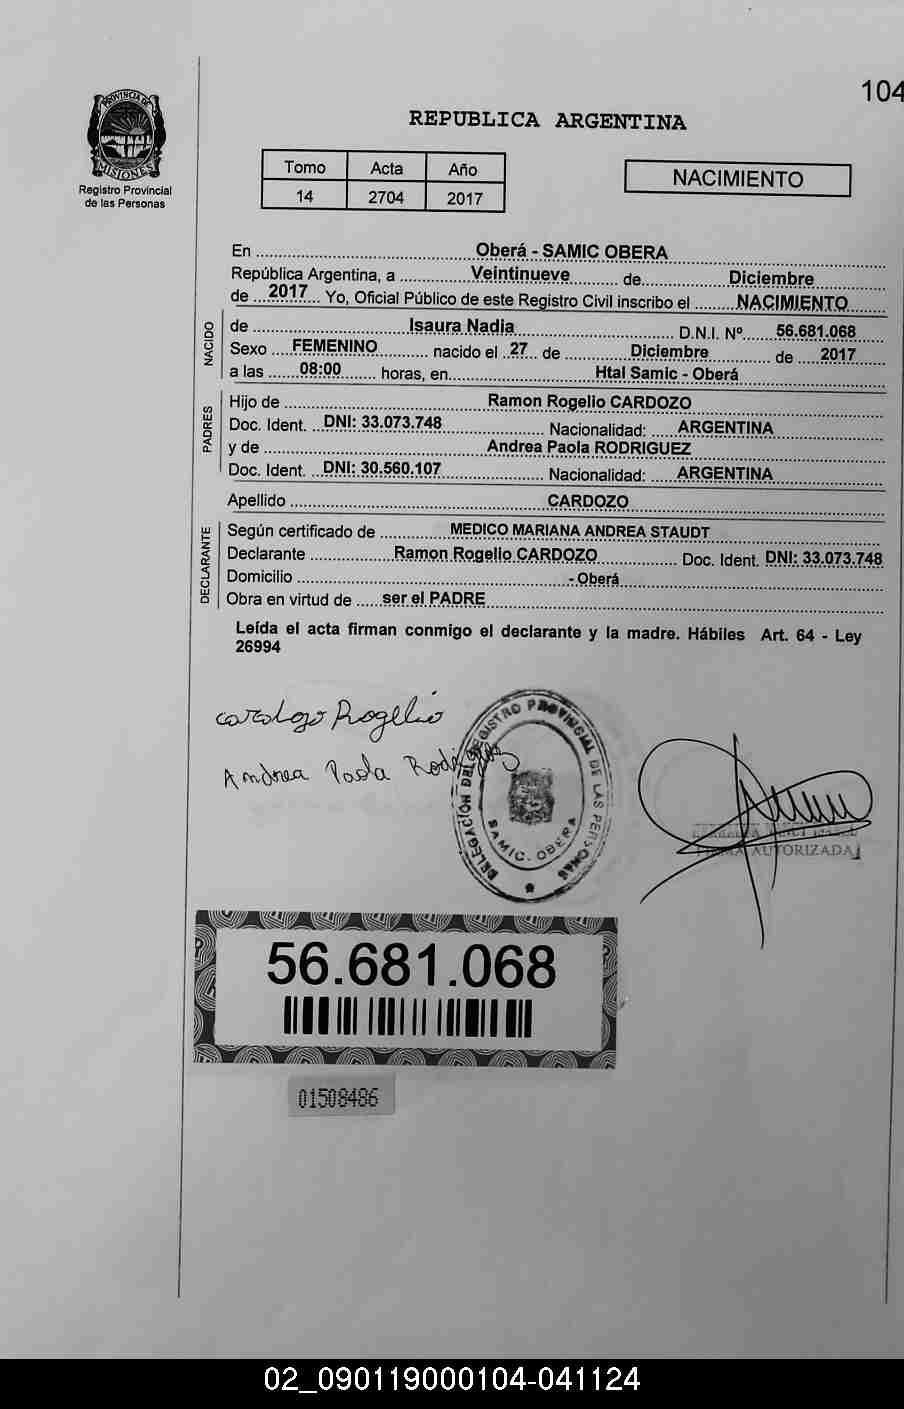 104
PROVINCIA DE
MISIONES
Registro Provincial
de las Personas
REPUBLICA ARGENTINA
Tomo Acta Año
14 2704 2017
NACIMIENTO
En Oberá - SAMIC OBERA
República Argentina, a Veintinueve de Diciembre
de 2017 Yo, Oficial Público de este Registro Civil inscribo el NACIMIENTO
NACIDO
de Isaura Nadia D.N.I. Nº 56.681.068
Sexo FEMENINO nacido el 27 de Diciembre de 2017
a las 08:00 horas, en Htal Samic - Oberá
PADRES
Hijo de Ramon Rogelio CARDOZO
Doc. Ident. DNI: 33.073.748 Nacionalidad: ARGENTINA
y de Andrea Paola RODRIGUEZ
Doc. Ident. DNI: 30.560.107 Nacionalidad: ARGENTINA
Apellido CARDOZO
DECLARANTE
Según certificado de MEDICO MARIANA ANDREA STAUDT
Declarante Ramon Rogelio CARDOZO Doc. Ident. DNI: 33.073.748
Domicilio - Oberá
Obra en virtud de ser el PADRE
Leída el acta firman conmigo el declarante y la madre. Hábiles Art. 64 - Ley
26994
cardozo Rogelio
Andrea Paola Rodriguez
DELEGACIÓN DEL REGISTRO PROVINCIAL DE LAS PERSONAS
SAMIC. OBERA
FIRMA AUTORIZADA
56.681.068
01508486
02_090119000104-041124